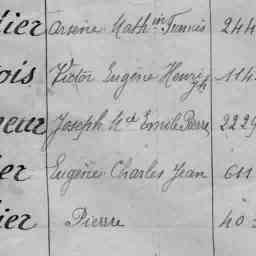 lier Arsène Math in Francis 244
ois Victor Eugène Henri Jh 114
neur Joseph Md Emile Pierre 2229
er Eugènes Charles Jean 611
ier Pierre 40